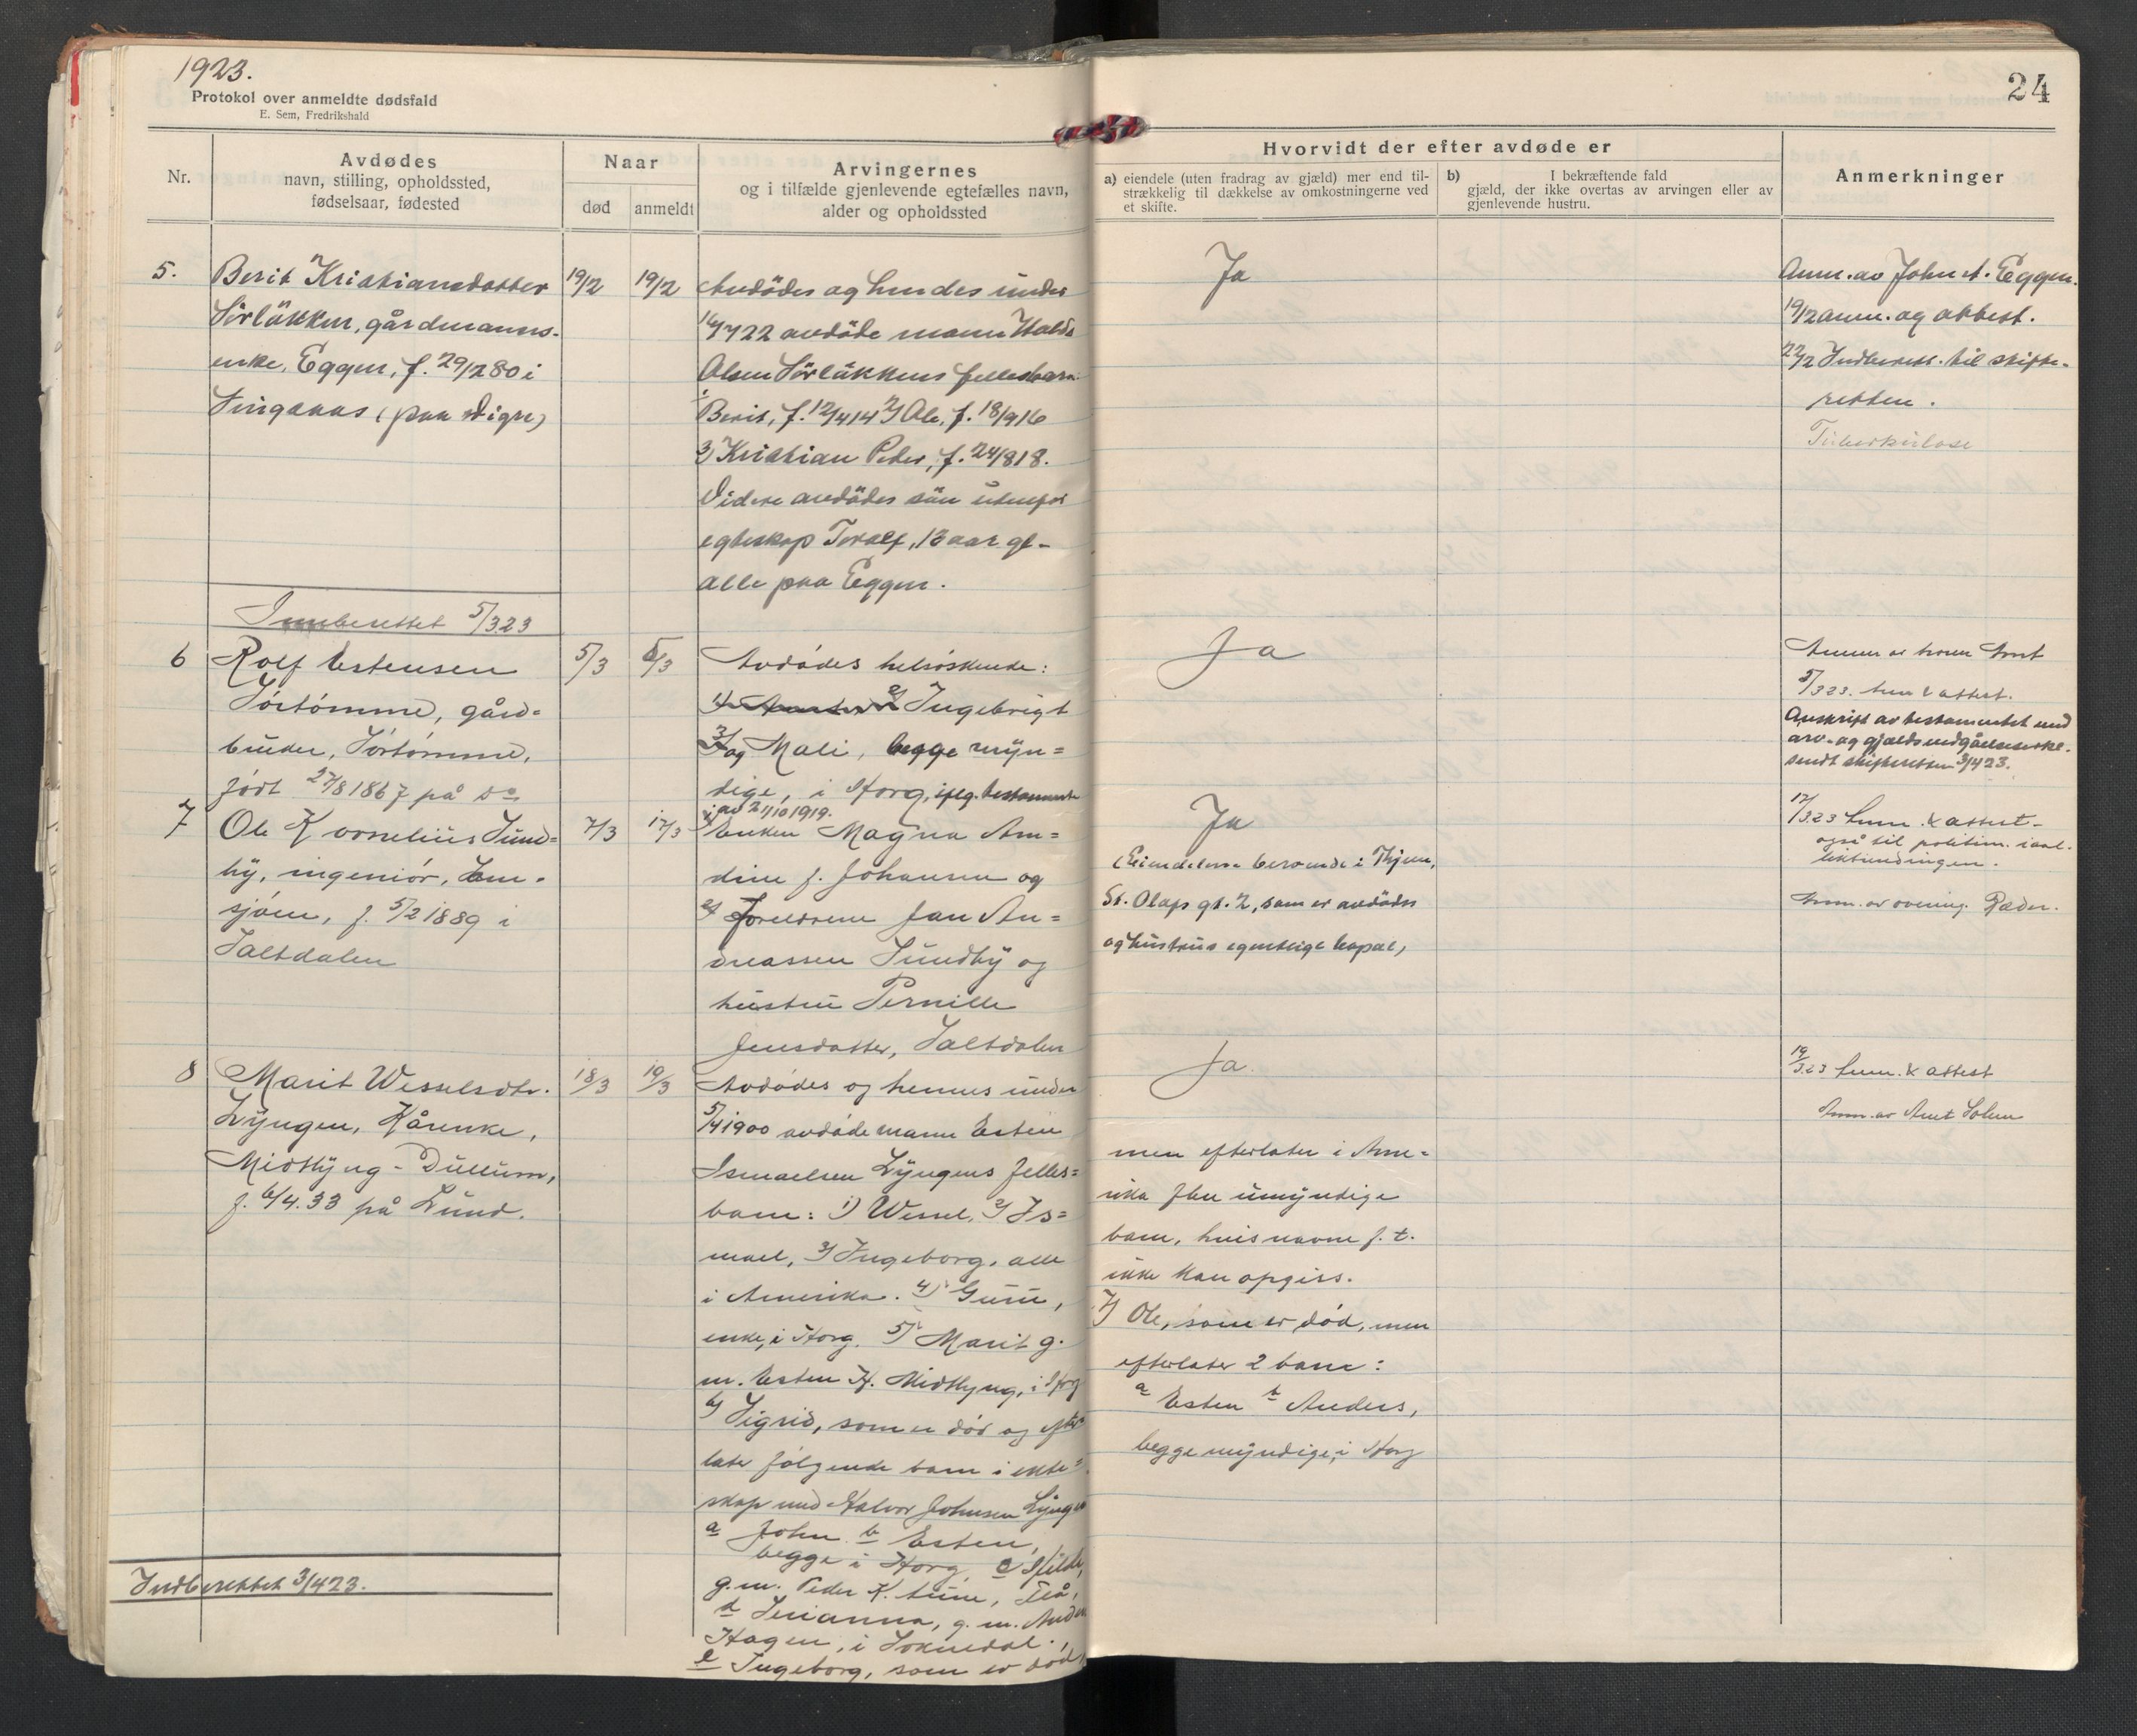 1923.
Protokol over anmeldte dødsfald
E. Sem, Fredrikshald
24
Nr.
Avdødes
navn, stilling, opholdssted,
fødselsaar, fødested
Naar
død
anmeldt
Arvingernes
og i tilfælde gjenlevende egtefælles navn,
alder og opholdssted
Hvorvidt der efter avdøde er
a) eiendele (uten fradrag av gjæld) mer end til-
strækkelig til dækkelse av omkostningerne ved
et skifte.
b) I bekræftende fald
gjæld, der ikke overtas av arvingen eller av
gjenlevende hustru.
Anmerkninger
5.
Berit Kristiansdatter
Sörlökken, gårdmanns-
enke, Eggen, f. 29/2 80 i
Singsaas (paa Digre)
19/2
19/2
Avdödes og hendes under
/7 22 avdöde mann
Olsen Sörlökkens fellesbarn:
Berit, f. 12/4 14 2) Ole, f. 18/9 16
3) Kristian Peder, f. 24/8 18.
Videre avdödes sön utenfor
egteskap Toralf, 13 aar gl-
alle paa Eggen.
Ja
Anm. av John A. Eggen.
19/2 anm. og attest.
22/2 Indberett. til skifte-
retten.
Tuberkulose
Innberettet 5/3 23
6
Rolf Estensen
Sörtömme, gård-
bruker, Sörtömme,
födt 27/8 1867 på do
5/3
5/3
Avdödes helsöskende:
1) 2) Ingebrigt
3) og Mali, begge myn=
dige, i Horg, iflg. testamente
av 21/10 1919.
Ja
5/3 23. Anm & attest.
Avskrift av testamentet med
arv- og gjeldsvedgåelseserkl.
sendt skifteretten 3/4 23.
7
Ole Kornelius Sund=
by, ingeniör,
sjöen, f. 5/2 1889 i
Saltdalen
7/3
17/3
1) Enken Magna Am=
dine f. Johansen og
2) Foreldrene Jan An=
dreassen Sundby og
hustru Pernille
Jensdatter, Saltdalen
Ja
(Eiendelene beroende i Thjem,
St. Olafs gt. 2, som er avdödes
og hustrus egentlige bopæl)
17/3 23 Anm. & attest-
også til politim. i anl.
liksendingen.
Anm. av overing. Ræder.
8
Marit Wesselsdtr.
Lyngen, Kårenke,
Midtlyng-Dullum,
f. 6/4.33 på Lund.
18/3
19/3
Avdödes og hennes under
5/4 1900 avdöde mann Esten
Ismaelsen Lyngens felles=
barn: 1) Wessel, 2) Is=
mael, 3) Ingeborg, alle
i Amerika. 4) Guru,
enke, i Horg. 5) Marit g.
m. Esten H. Midtlyng, i Horg
6) Sigrid, som er död og efter
later fölgende barn i ekte=
skap med Halvor Johnsen Lyngen
a John b Esten,
begge i Horg, c
g.m. Peder K. , Flå,
d Serianna, g.m. Anders
Hagen, i Soknedal.,
e Ingeborg, som er död,
Ja.
men efterlater i Ame=
rika flere umyndige
barn, hvis navne f. t.
ikke kan opgis.
7) Ole, som er död, men
efterlater 2 barn:
a Esten b Anders,
begge myndige, i Horg
19/3 23 Anm. & attest
Anm. av Arnt Solem
Indberettet 3/4 23.